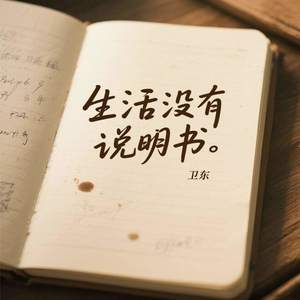 生活没有
说明书。
卫东